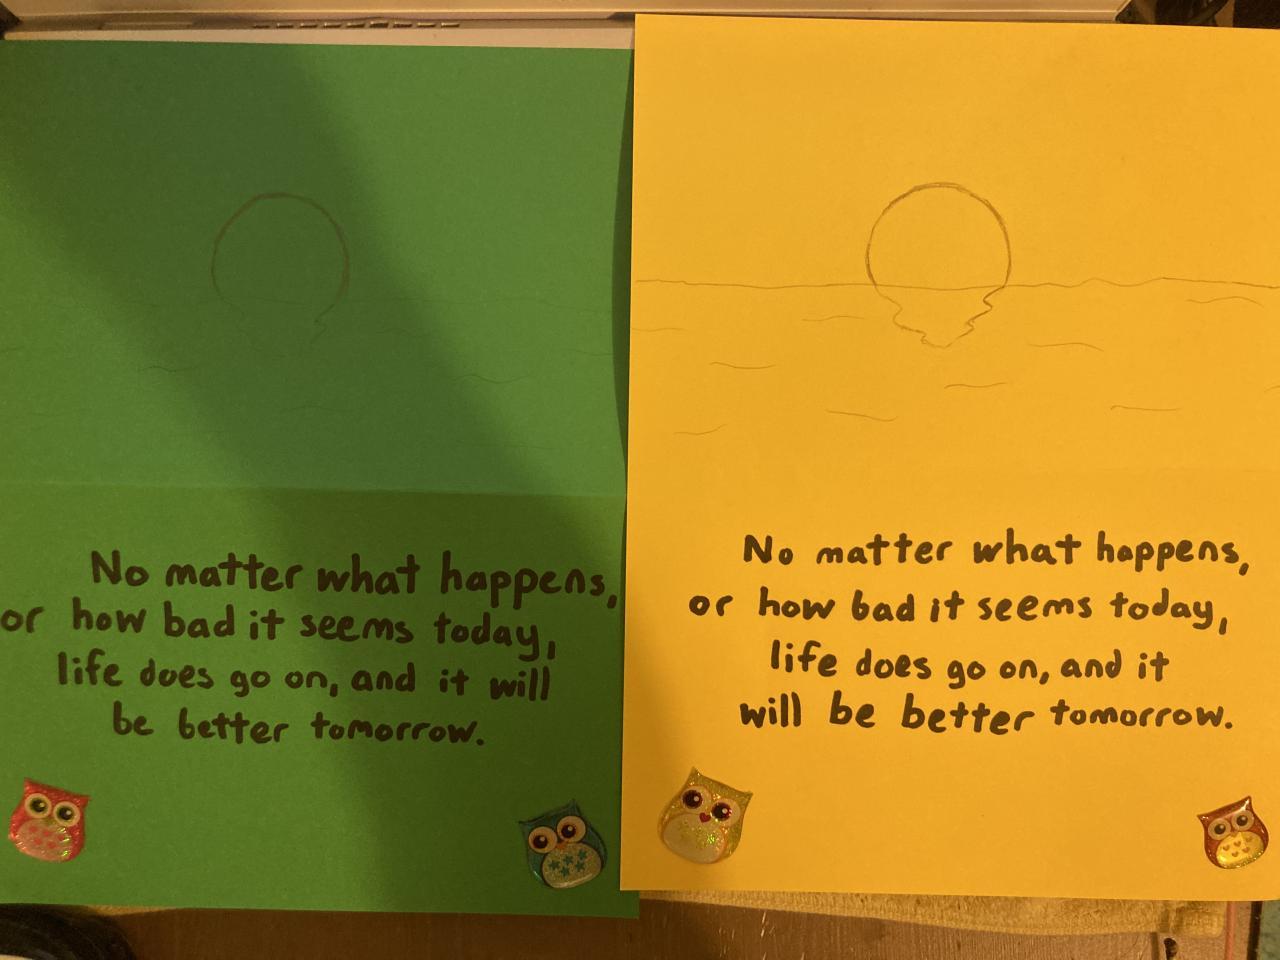 No matter what happens,
or how bad it seems today,
life does go on, and it will
be better tomorrow.
No matter what happens,
or how bad it seems today,
life does go on, and it
will be better tomorrow.